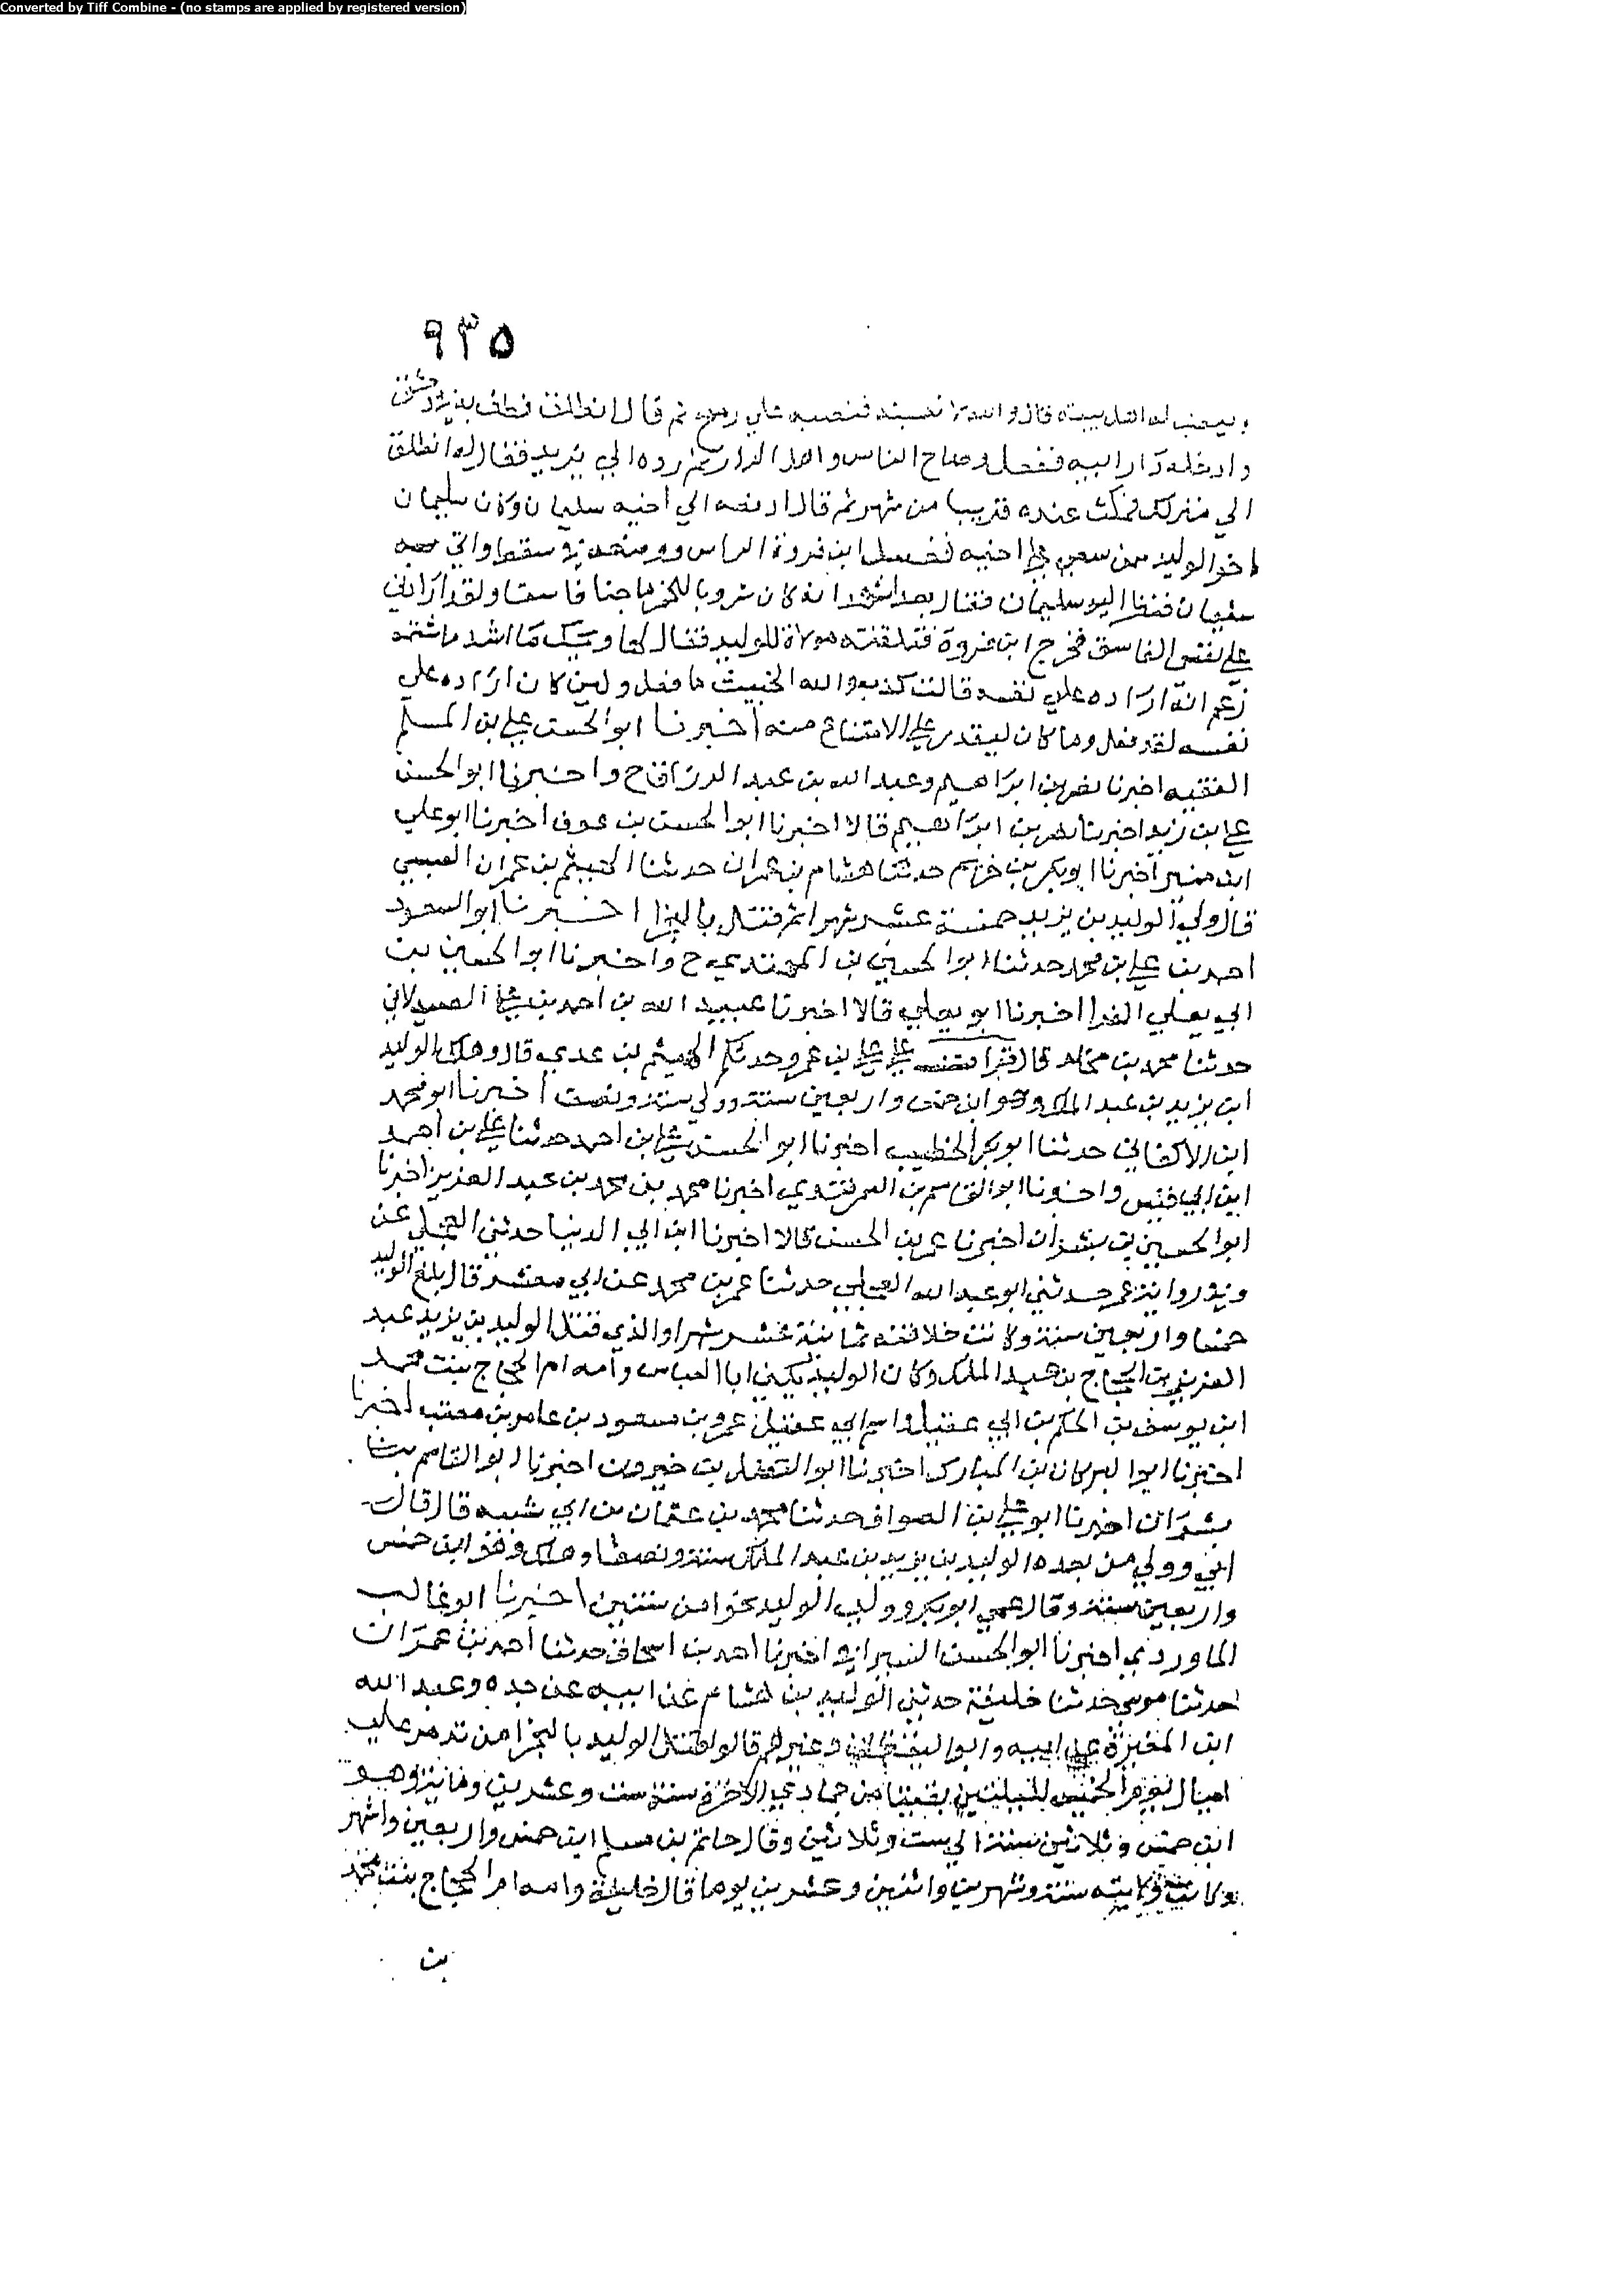 Converted by Tiff Combine - (no stamps are applied by registered version)
٩٣٥
ويغضب له اهل بيته قال والله لا نصبته فنصبه علي رمح ثم قال انطلق فطف به في دمشق
وادخله دار ابيه ففعل وصاح الناس واهل الدار ثم رده الي يزيد فقال له انطلق
الي منزلك فمكث عنده قريبا من شهر ثم قال ادفعه الي اخيه سليمان وكان سليمان
اخو الوليد ممن سعي علي اخيه فغسل ابن فروة الراس ووضعه في سفط واتي به
سليمان فنظر اليه سليمان فقال بعدا اشهد انه كان شروبا للخمر ماجنا فاسقا ولقد ارادني
علي نفسي الفاسق فخرج ابن فروة فتلقته مولاة للوليد فقال لها ويحك ما اشد ما شتمه
زعم انه اراده علي نفسه قالت كذب والله الخبيث ما فعل ولين كان اراده علي
نفسه لقد فعل وما كان ليقدر علي الامتناع منه اخبرنا ابو الحسن علي بن المسلم
الفقيه اخبرنا نصر بن ابراهيم وعبد الله بن عبد الرزاق ح واخبرنا ابو الحسن
علي بن زيد اخبرنا نصر بن ابراهيم قالا اخبرنا ابو الحسن بن عوف اخبرنا ابو علي
ابن منير اخبرنا ابو بكر بن خريم حدثنا هشام بن عمار حدثنا الهيثم بن عمران العبسي
قال ولي الوليد بن يزيد خمسة عشر شهرا ثم قتل بالبخرا اخبرنا ابو السعود
احمد بن علي بن محمد حدثنا ابو الحسين بن المهتدي ح واخبرنا ابو الحسين بن
ابي يعلي الفرا اخبرنا ابو يعلي قالا اخبرنا عبيد الله بن احمد بن علي الصيدلاني
حدثنا محمد بن مخلد قال قرات علي علي بن عمرو حدثكم الهيثم بن عدي قال وهلك الوليد
ابن يزيد بن عبد الملك وهو ابن خمس واربعين سنة وولي سنة ونصف اخبرنا ابو محمد
ابن الاكفاني حدثنا ابو بكر الخطيب اخبرنا ابو الحسن علي بن احمد حدثنا علي بن احمد
ابن ابي قيس واخبرنا ابو القاسم بن السمرقندي اخبرنا محمد بن محمد بن عبد العزيز اخبرنا
ابو الحسين بن بشران اخبرنا عمر بن الحسن قالا اخبرنا ابن ابي الدنيا حدثني العجلي عن
وفي رواية عمر حدثني ابو عبد الله العجلي حدثنا عمر بن محمد عن ابي معشر قال بلغ الوليد
خمسا واربعين سنة وكانت خلافته ثمانية عشر شهرا والذي قتل الوليد بن يزيد عبد
العزيز بن الحجاج بن عبد الملك وكان الوليد يكني ابا العباس وامه ام الحجاج بنت محمد
ابن يوسف بن الحكم بن ابي عقيل واسم ابي عقيل عمرو بن مسعود بن عامر بن معتب اخبرنا
اخبرنا ابو البركات بن المبارك اخبرنا ابو الفضل بن خيرون اخبرنا ابو القاسم بن
بشران اخبرنا ابو علي بن الصواف حدثنا محمد بن عثمان بن ابي شيبه قال قال
ابي وولي من بعده الوليد بن يزيد بن عبد الملك سنة ونصفا وهلك وهو ابن خمس
واربعين سنة وقال عمي ابو بكر وولي الوليد نحوا من سنتين اخبرنا ابو غالب
الماوردي اخبرنا ابو الحسن السيرافي اخبرنا احمد بن اسحاق حدثنا احمد بن عمران
حدثنا موسي حدثنا خليفة حدثني الوليد بن هشام عن ابيه عن جده وعبد الله
ابن المغيرة عن ابيه وابو اليقظان وغيرهم قالوا قتل الوليد بالبخرا من تدمر علي
اميال يوم الخميس لليلتين بقيتا من جمادي الاخرة سنة ست وعشرين وماية وهو
ابن خمس وثلاثين سنة الي ست وثلاثين وقال حاتم بن مسلم ابن خمس واربعين واشهر
وكانت ولايته سنة وشهرين واثنين وعشرين يوما قال خليفة وامه ام الحجاج بنت محمد
بن